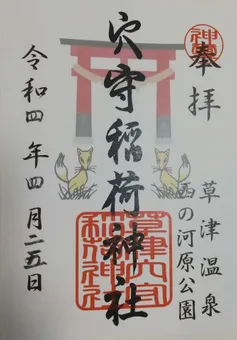 奉拝
草津温泉
西の河原公園
穴守稲荷神社
令和四年四月二五日